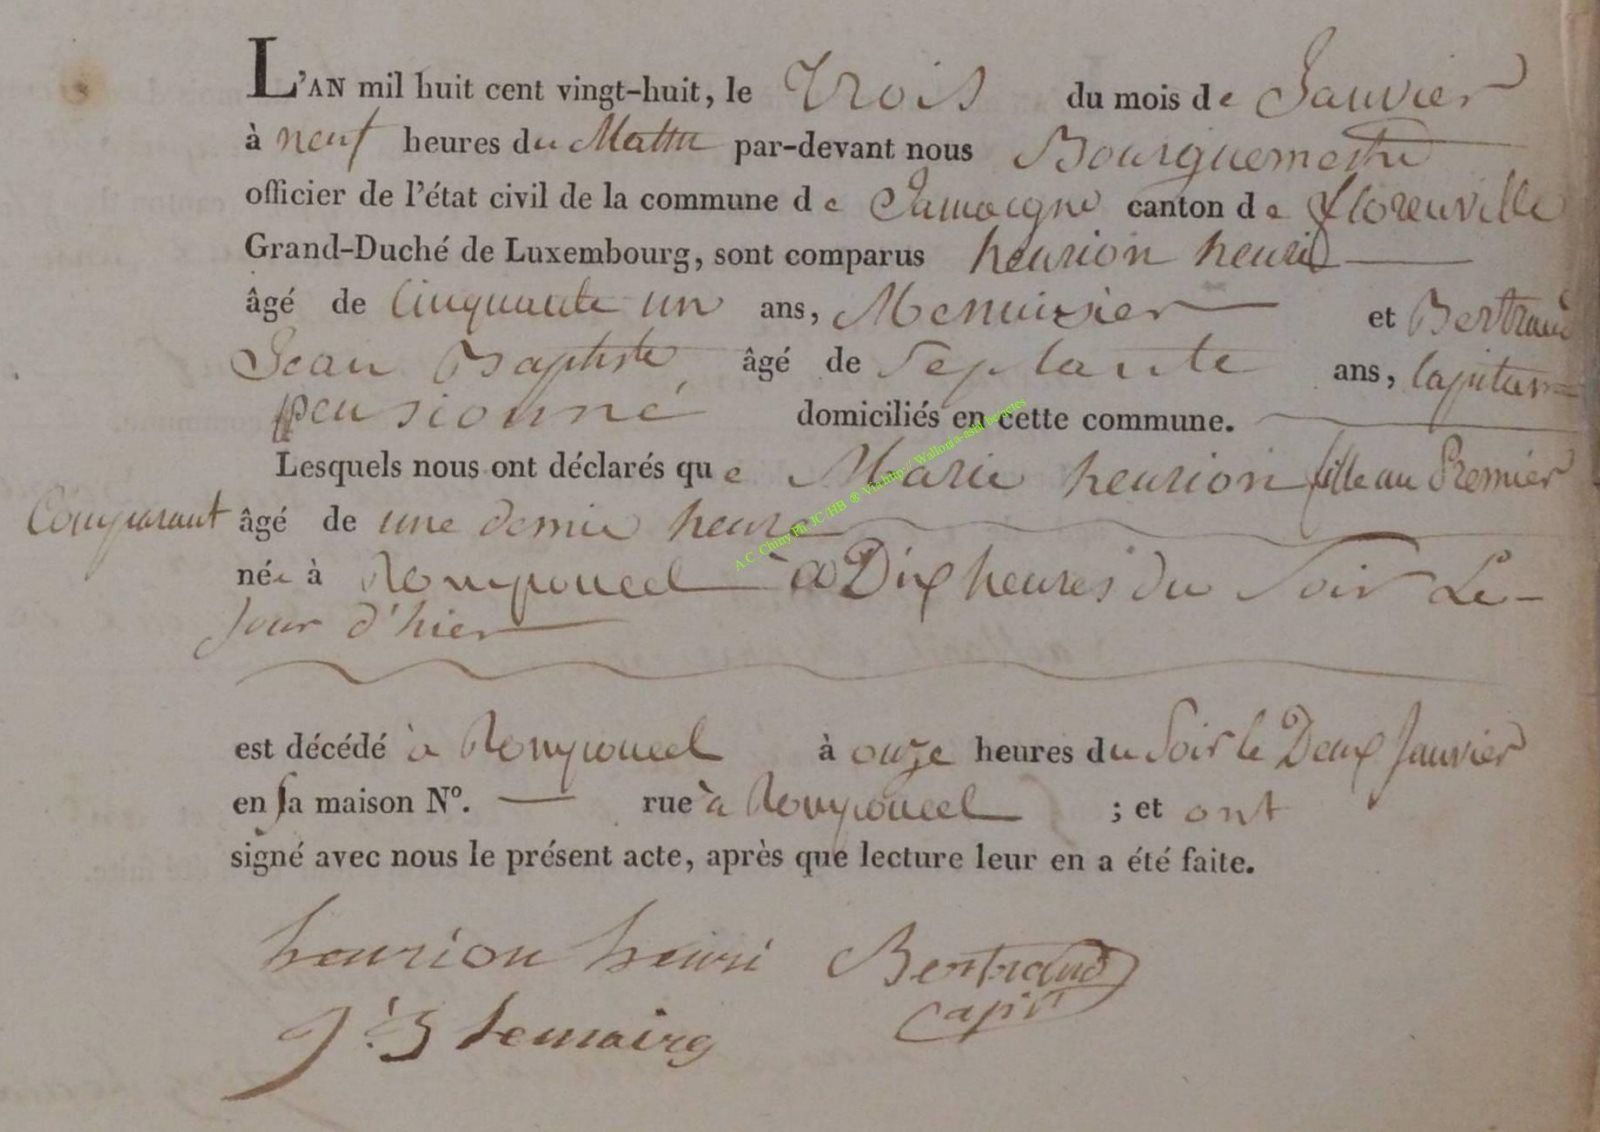 L'AN mil huit cent vingt-huit, le Trois du mois de Janvier
à neuf heures du Matin par-devant nous Bourguemestre
officier de l'état civil de la commune de Jamoigne canton de florenville
Grand-Duché de Luxembourg, sont comparus henrion henri
âgé de Cinquante un ans, Menuisier et Bertrand
Jean Baptiste âgé de Septante ans, Capitain
pensionné domiciliés en cette commune.
Lesquels nous ont déclarés que Marie henrion fille au Premier
Comparant âgé de une demie heure
née à Romponcel à Dix heures du Soir Le
Jour d'hier
est décédé à Romponcel à onze heures du Soir le Deux Janvier
en sa maison N°. rue à Romponcel ; et ont
signé avec nous le présent acte, après que lecture leur en a été faite.
henrion henri Bertrand
capit
J:B Lemaire
A.C Chiny Ph JC HB ® Via http:// Wallonia-asbl.be/actes